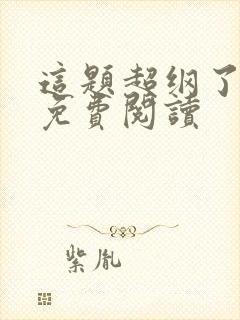 這題超纲了
免費閱讀
紫胤